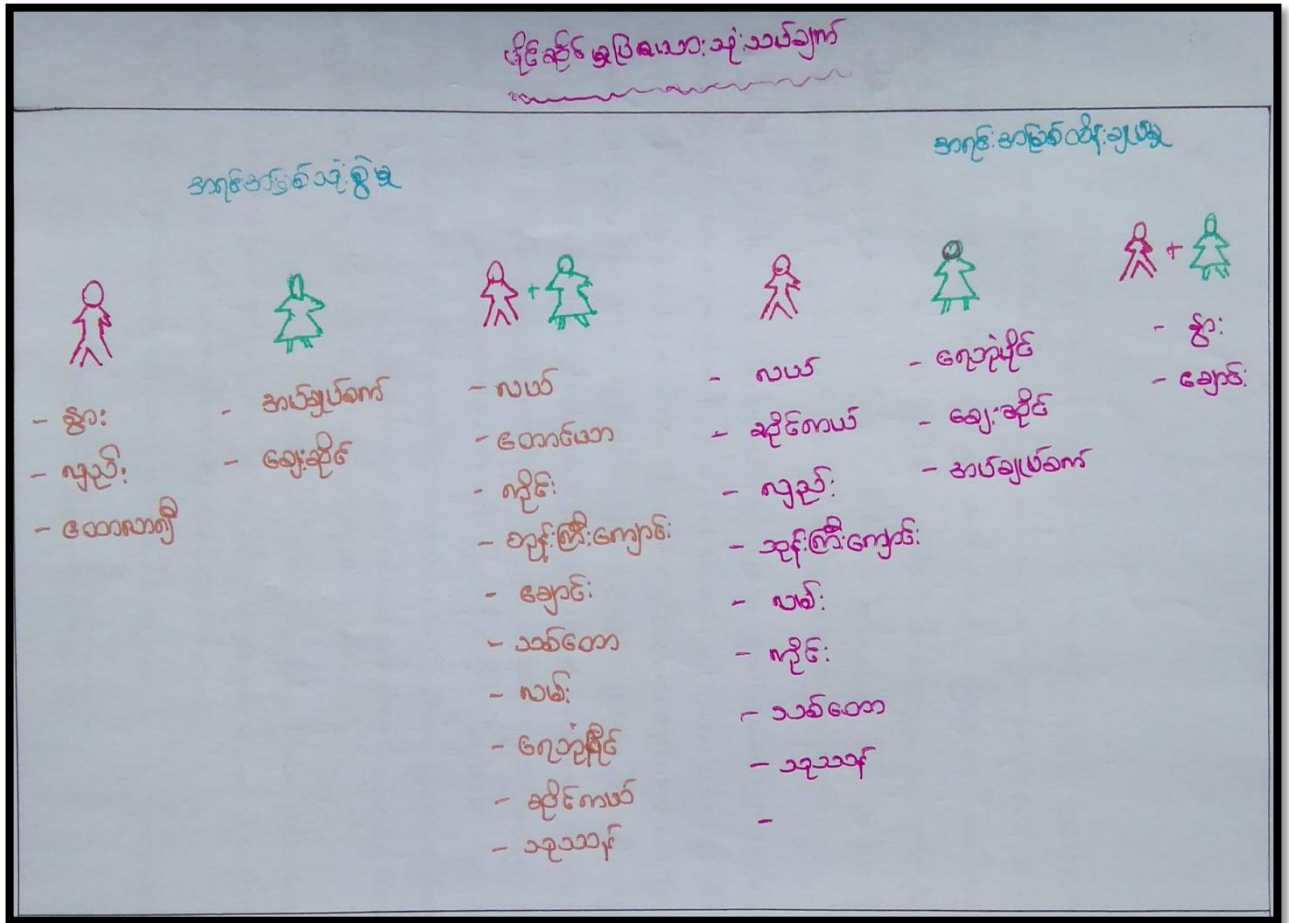 ပိုင်ဆိုင်မှုပြဇယားသုံးသပ်ချက်
အရင်းအမြစ်သုံးစွဲမှု
- နွား
- လှည်း
- ထောလာဂျီ
- အပ်ချုပ်စက်
- ဈေးဆိုင်
+
- လယ်
- တောင်ယာ
- ကိုင်း
- ဘုန်းကြီးကျောင်း
- ချောင်း
- သစ်တော
- လမ်း
- ရေဘုံပိုင်
- ဆိုင်ကယ်
- သုသာန်
အရင်းအမြစ်ထိန်းချုပ်မှု
- လယ်
- ဆိုင်ကယ်
- လှည်း
- ဘုန်းကြီးကျောင်း
- လမ်း
- ကိုင်း
- သစ်တော
- သုသာန်
-
- ရေဘုံပိုင်
- ဈေးဆိုင်
- အပ်ချုပ်စက်
+
- နွား
- ချောင်း